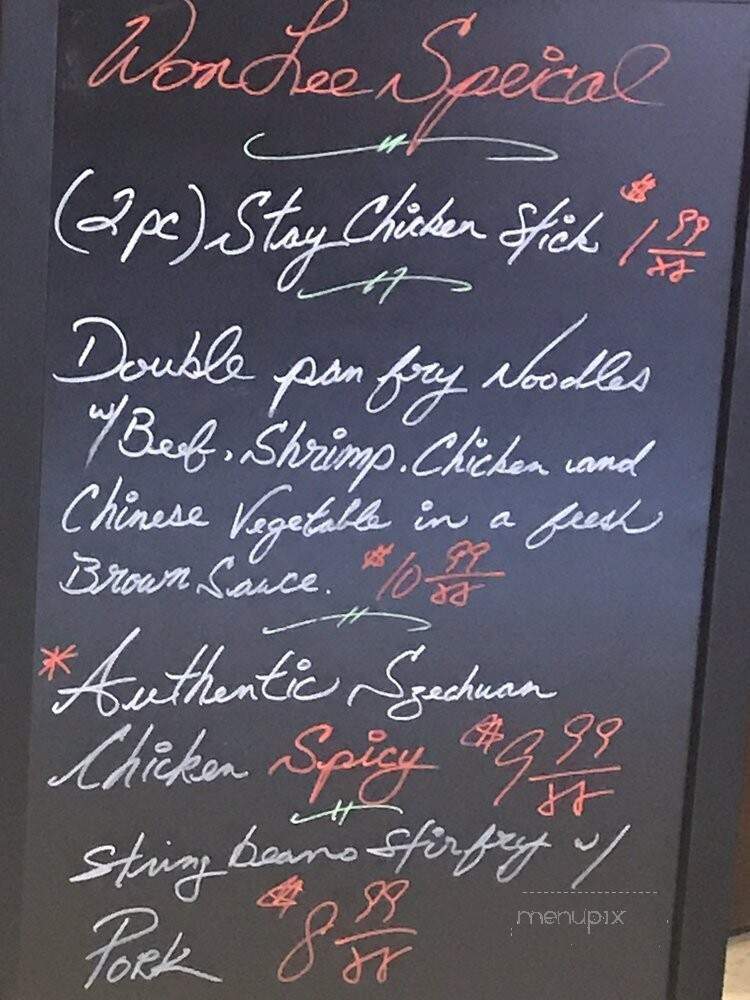 Won Lee Speical
(2pc) Stay Chicken Stick $1 99/xx
Double pan fry Noodles
w/ Beef, Shrimp, Chicken and
Chinese Vegetable in a fresh
Brown Sauce. $10 99/xx
* Authentic Szechuan
Chicken Spicy $9 99/xx
String beans Stir fry w/
Pork $8 99/xx
menupix